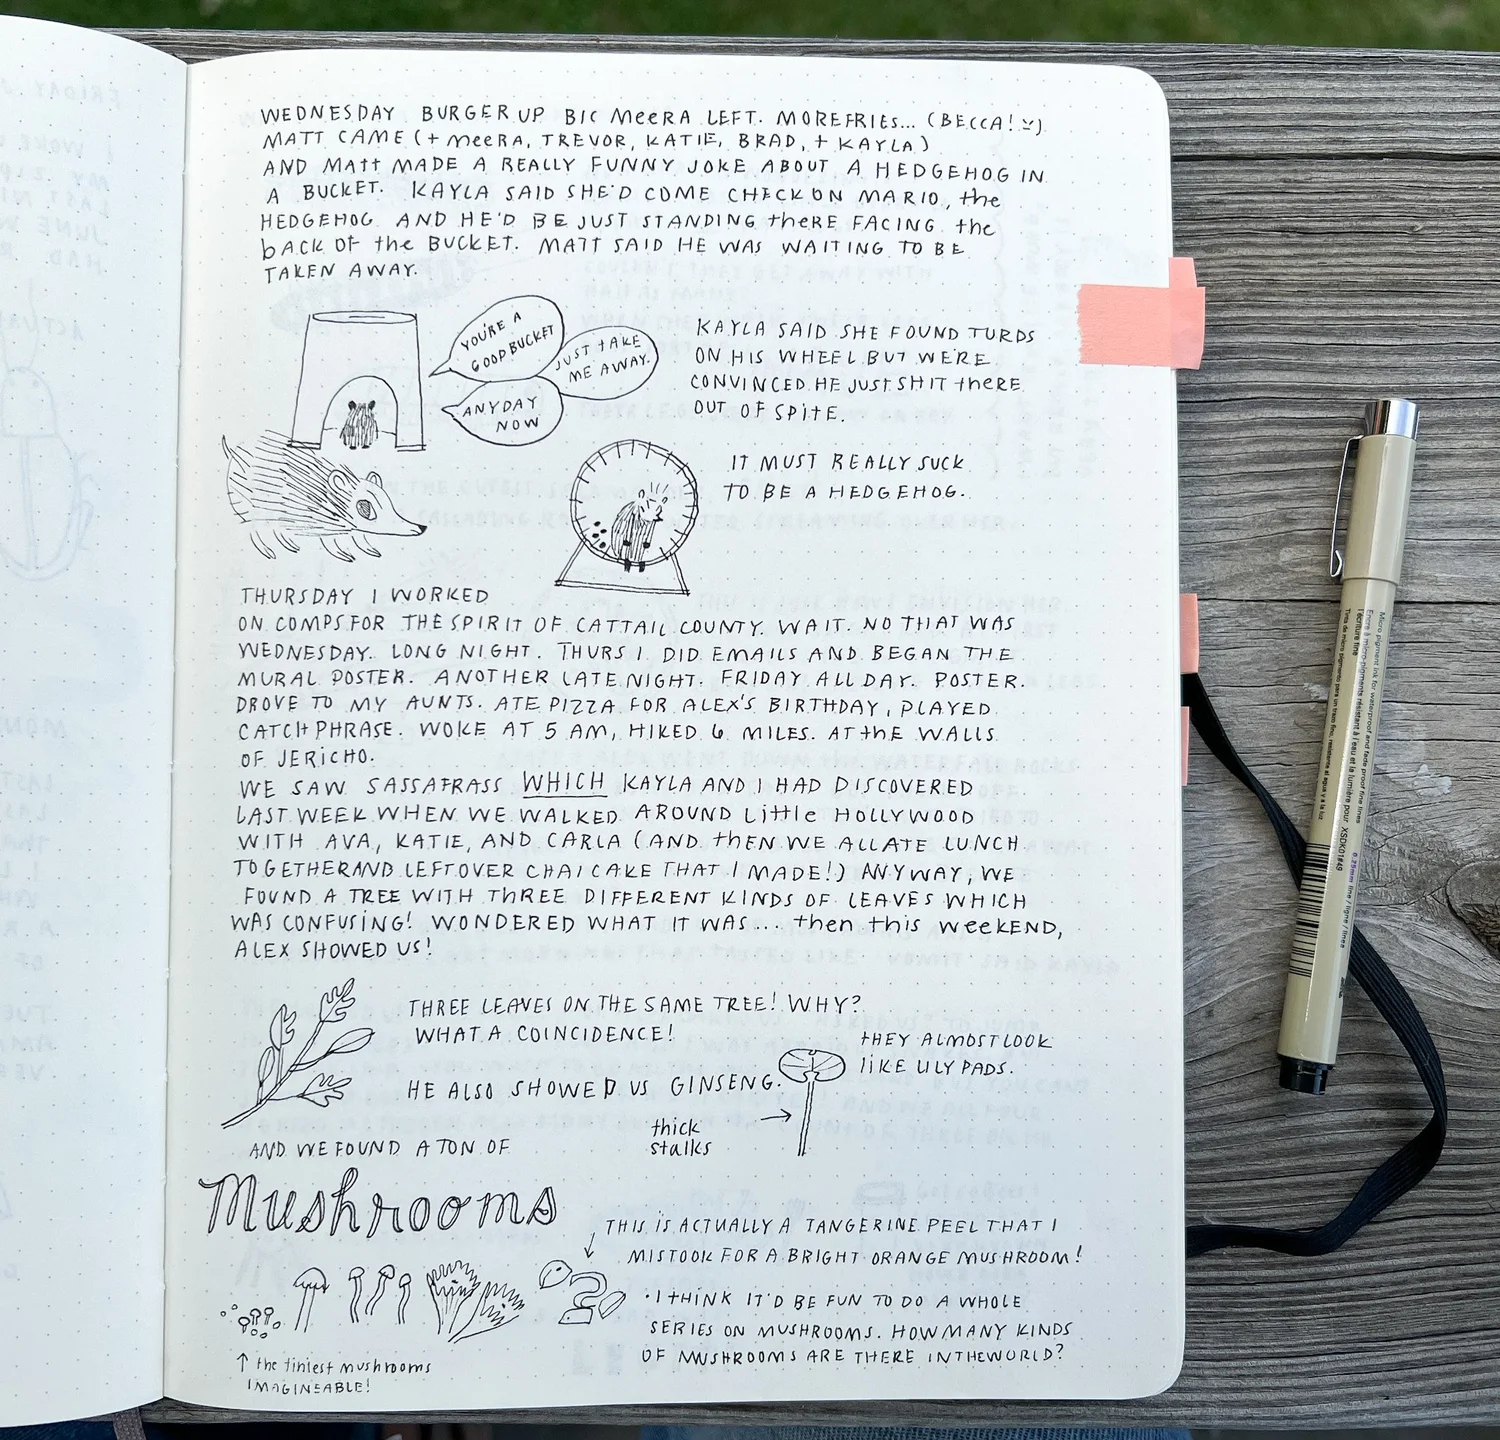 WEDNESDAY BURGER UP BIC MEERA LEFT. MORE FRIES... (BECCA! :)
MATT CAME (+ MEERA, TREVOR, KATIE, BRAD, + KAYLA)
AND MATT MADE A REALLY FUNNY JOKE ABOUT A HEDGEHOG IN
A BUCKET. KAYLA SAID SHE'D COME CHECK ON MARIO, the
HEDGEHOG AND HE'D BE JUST STANDING thERE FACING the
bACK OF the BUCKET. MATT SAID HE WAS WAITING TO BE
TAKEN AWAY.
YOU'RE A
GOOD BUCKET
JUST TAKE
ME AWAY.
ANYDAY
NOW
KAYLA SAID SHE FOUND TURDS
ON HIS WHEEL BUT WERE
CONVINCED HE JUST SHIT thERE
OUT OF SPITE.
IT MUST REALLY SUCK
TO BE A HEDGEHOG.
THURSDAY I WORKED
ON COMPS FOR THE SPIRIT OF CATTAIL COUNTY. WAIT. NO THAT WAS
WEDNESDAY. LONG NIGHT. THURS I DID EMAILS AND BEGAN THE
MURAL POSTER. ANOTHER LATE NIGHT. FRIDAY ALL DAY. POSTER.
DROVE TO MY AUNTS. ATE PIZZA FOR ALEX'S BIRTHDAY, PLAYED
CATCH PHRASE. WOKE AT 5 AM, HIKED 6 MILES. AT thE WALLS
OF JERICHO.
WE SAW SASSAFRASS WHICH KAYLA AND I HAD DISCOVERED
LAST WEEK WHEN WE WALKED AROUND Little HOLLYWOOD
WITH AVA, KATIE, AND CARLA (AND thEN WE ALL ATE LUNCH
TOGETHER AND LEFTOVER CHAI CAKE THAT I MADE!) ANYWAY, WE
FOUND A TREE WITH THREE DIFFERENT KINDS OF LEAVES WHICH
WAS CONFUSING! WONDERED WHAT IT WAS... then this weekEND,
ALEX SHOWED US!
THREE LEAVES ON THE SAME TREE! WHY?
WHAT A COINCIDENCE!
HE ALSO SHOWED US GINSENG.
tHEY ALMOST LOOK
lIKE LILY PADS.
thick
stalks
AND WE FOUND A TON OF
Mushrooms
THIS IS ACTUALLY A TANGERINE PEEL THAT I
MISTOOK FOR A BRIGHT ORANGE MUSHROOM!
• I tHINK IT'D BE FUN TO DO A WHOLE
SERIES ON MUSHROOMS. HOW MANY KINDS
OF MUSHROOMS ARE THERE IN THE WORLD?
↑ the tiniest mushrooms
IMAGINEABLE!
Micro pigment ink for waterproof and fade proof fine lines
Encre à micro-pigments résistant à l'eau et la lumière pour
l'écriture fine
XSDK01#49
0.25mm line / ligne / línea